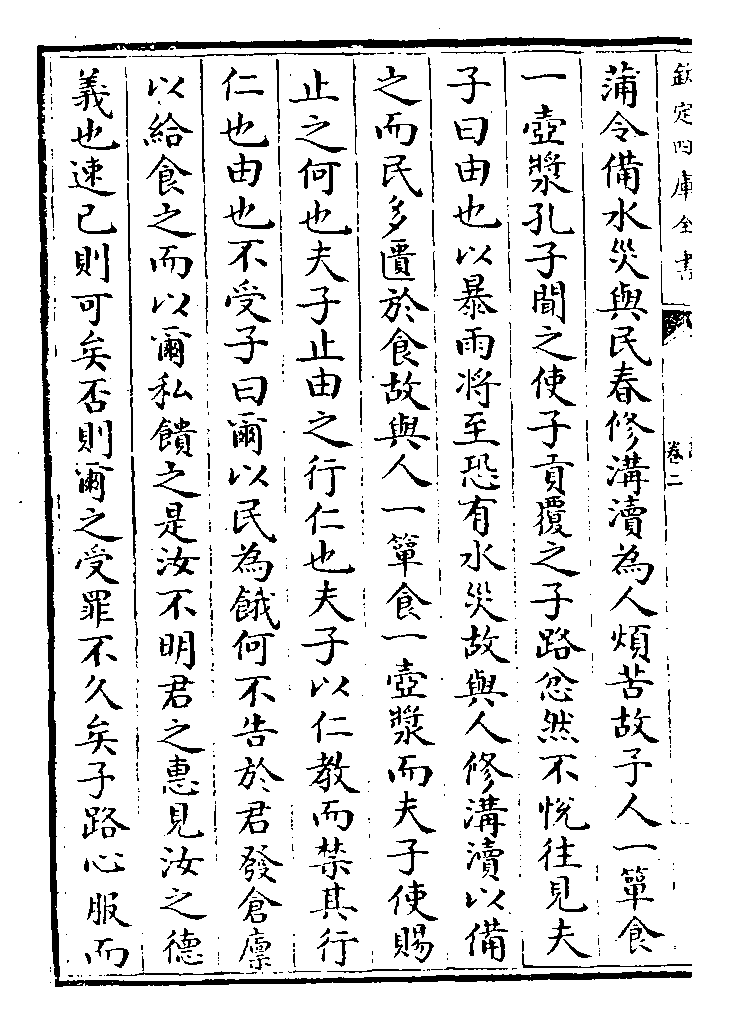 欽定四庫全書
卷二
蒲令備水災與民春修溝瀆為人煩苦故予人一簞食
一壺漿孔子聞之使子貢覆之子路忿然不悅往見夫
子曰由也以暴雨将至恐有水災故與人修溝瀆以備
之而民多匱於食故與人一簞食一壺漿而夫子使賜
止之何也夫子止由之行仁也夫子以仁教而禁其行
仁也由也不受子曰爾以民為餓何不告於君發倉廪
以給食之而以爾私饋之是汝不明君之惠見汝之德
義也速已則可矣否則爾之受罪不久矣子路心服而